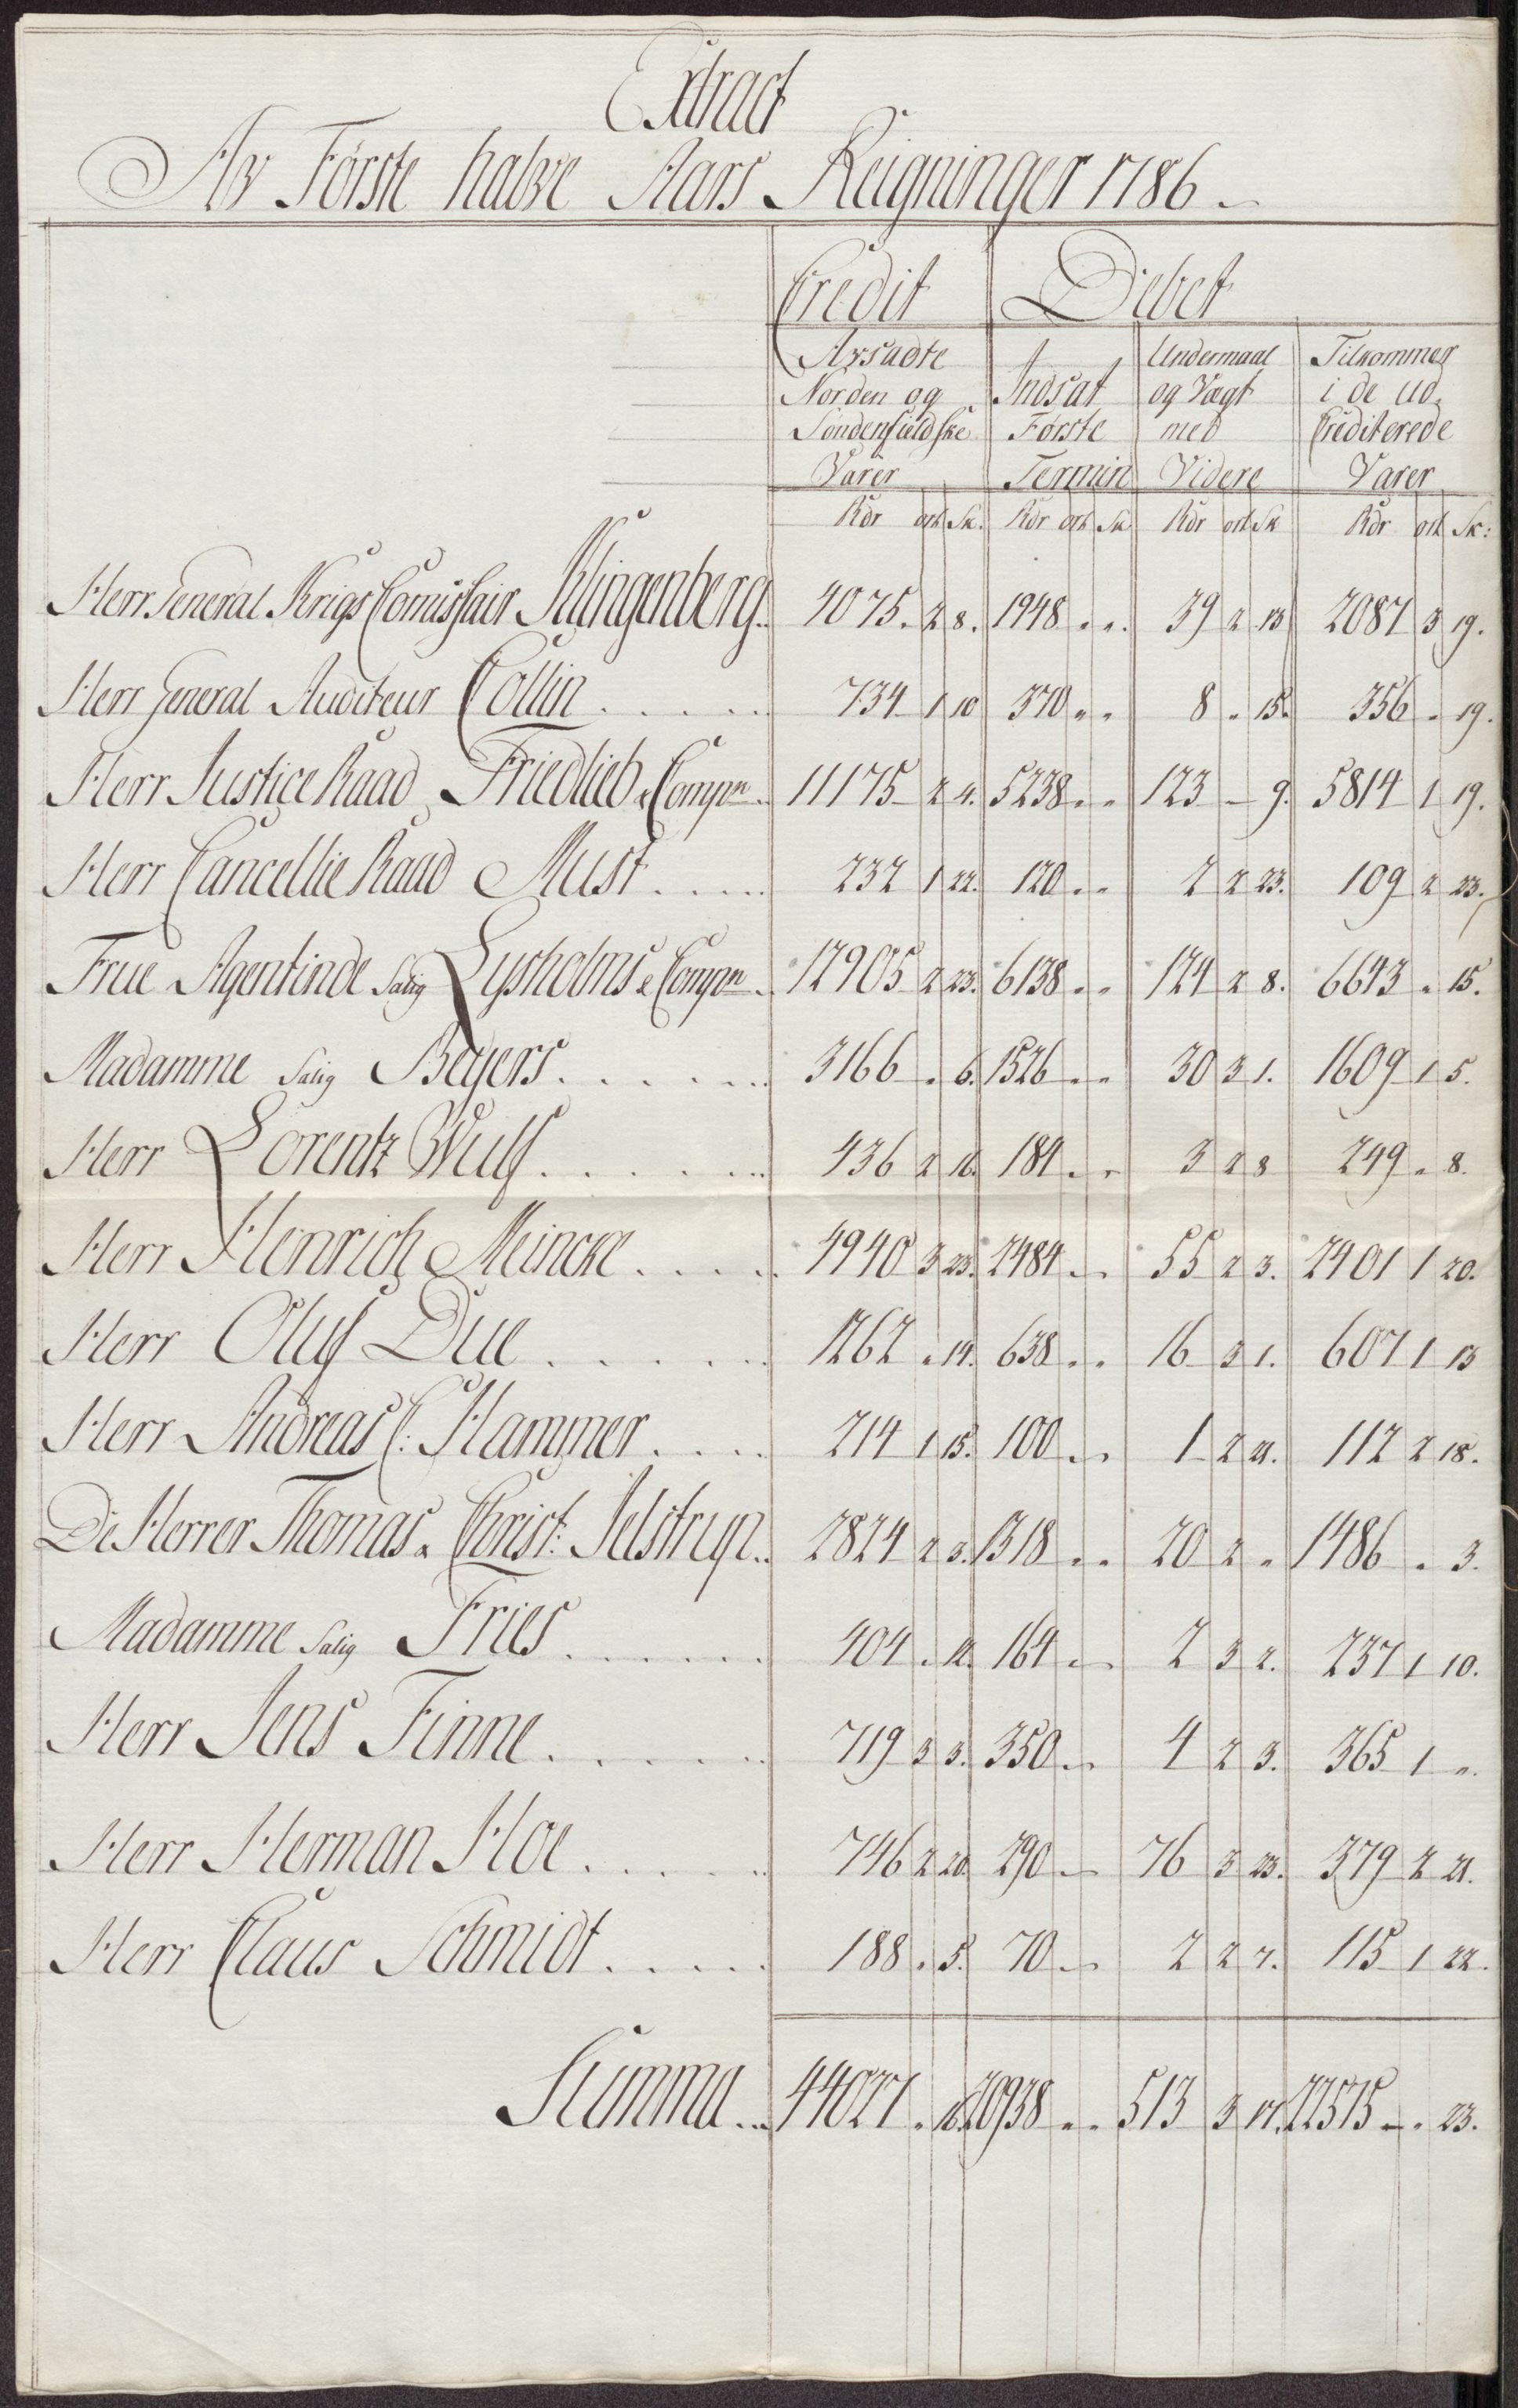 Extract
Av Første halve Aars Reigninger 1786
Credit Debet
Avsadte Undermaal Tilkommer
Norden og Indsat og Vægt i de ud
Søndenfieldske Første med Crediterede
Varer Termin Videre Varer
Rdr ort Sk. Rdr ort Sk Rdr ort Sk Rdr ort Sk:
Herr General Krigs Comissair Klingenberg.. 4075. 2 8. 1948 „ „ 39 2 13 2087 3 19.
Herr General Auditeur Collin . . . . . 734 1 10 370 „ „ 8 „ 15. 356 „ 19.
Herr Justice Raad Friedlieb & Compn.. 11175 2 4. 5238 „ „ 123 – 9. 5814 1 19.
Herr Cancellie Raad Must . . . . . 232 1 22. 120 „ „ 2 2 23. 109 2 23.
Frue Agentinde Salig Lysholms & Compn. 12905 2 23. 6138 „ „ 124 2 8. 6643 „ 15.
Madamme Salig Beyers . . . . . . . 3166 „ 6. 1526 „ „ 30 3 1. 1609 1 5.
Herr Lorentz Wulf . . . . . . . 436 2 16. 184 „ „ 3 2 8 249 „ 8.
Herr Henrich Meincke . . . . . 4940 3 23. 2484 „ „ 55 2 3. 2401 1 20.
Herr Oluf Due . . . . . . 1262 „ 14. 638 „ „ 16 3 1. 607 1 13
Herr Andreas C: Hammer . . . . 214 1 15. 100 „ „ 1 2 21. 112 2 18.
De Herrer Thomas & Christ: Jelstrup.. 2824 2 3. 1318 „ „ 20 2 „ 1486 „ 3.
Madamme Salig Fries . . . . . . 404 „ 12. 164 „ „ 2 3 2. 237 1 10.
Herr Jens Finne . . . . . . 719 3 3. 350 „ „ 4 2 3. 365 1 „.
Herr Herman Hoe . . . . . 746 2 20. 290 „ „ 76 3 23. 379 2 21.
Herr Claus Schmidt . . . . . 188 „ 5. 70 „ „ 2 2 7. 115 1 22.
Summa... 44027 „ 16. 20938 „ „ 513 3 17. 22575 – „ 23.